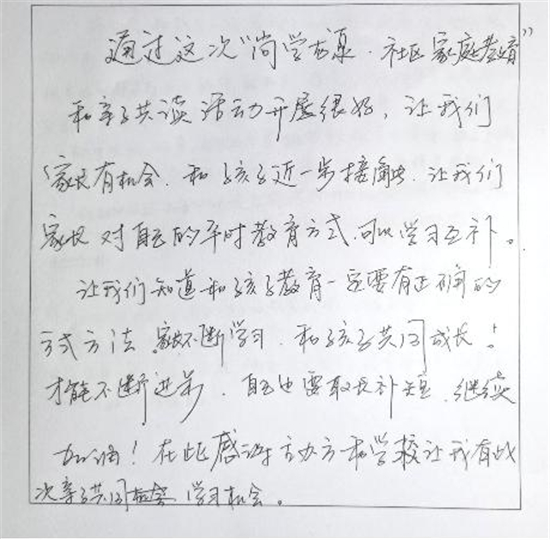 通过这次“尚学龙泉·社区家庭教育”
和亲子共读活动开展很好，让我们
家长有机会，和孩子近一步接触，让我们
家长对自己的平时教育方式，可以学习互补。
让我们知道和孩子教育一定要有正确的
方式方法，家长不断学习，和孩子共同成长！
才能不断进步，自己也要取长补短，继续
加油！在此感谢主办方和学校让我有此
次亲子共同学习机会。